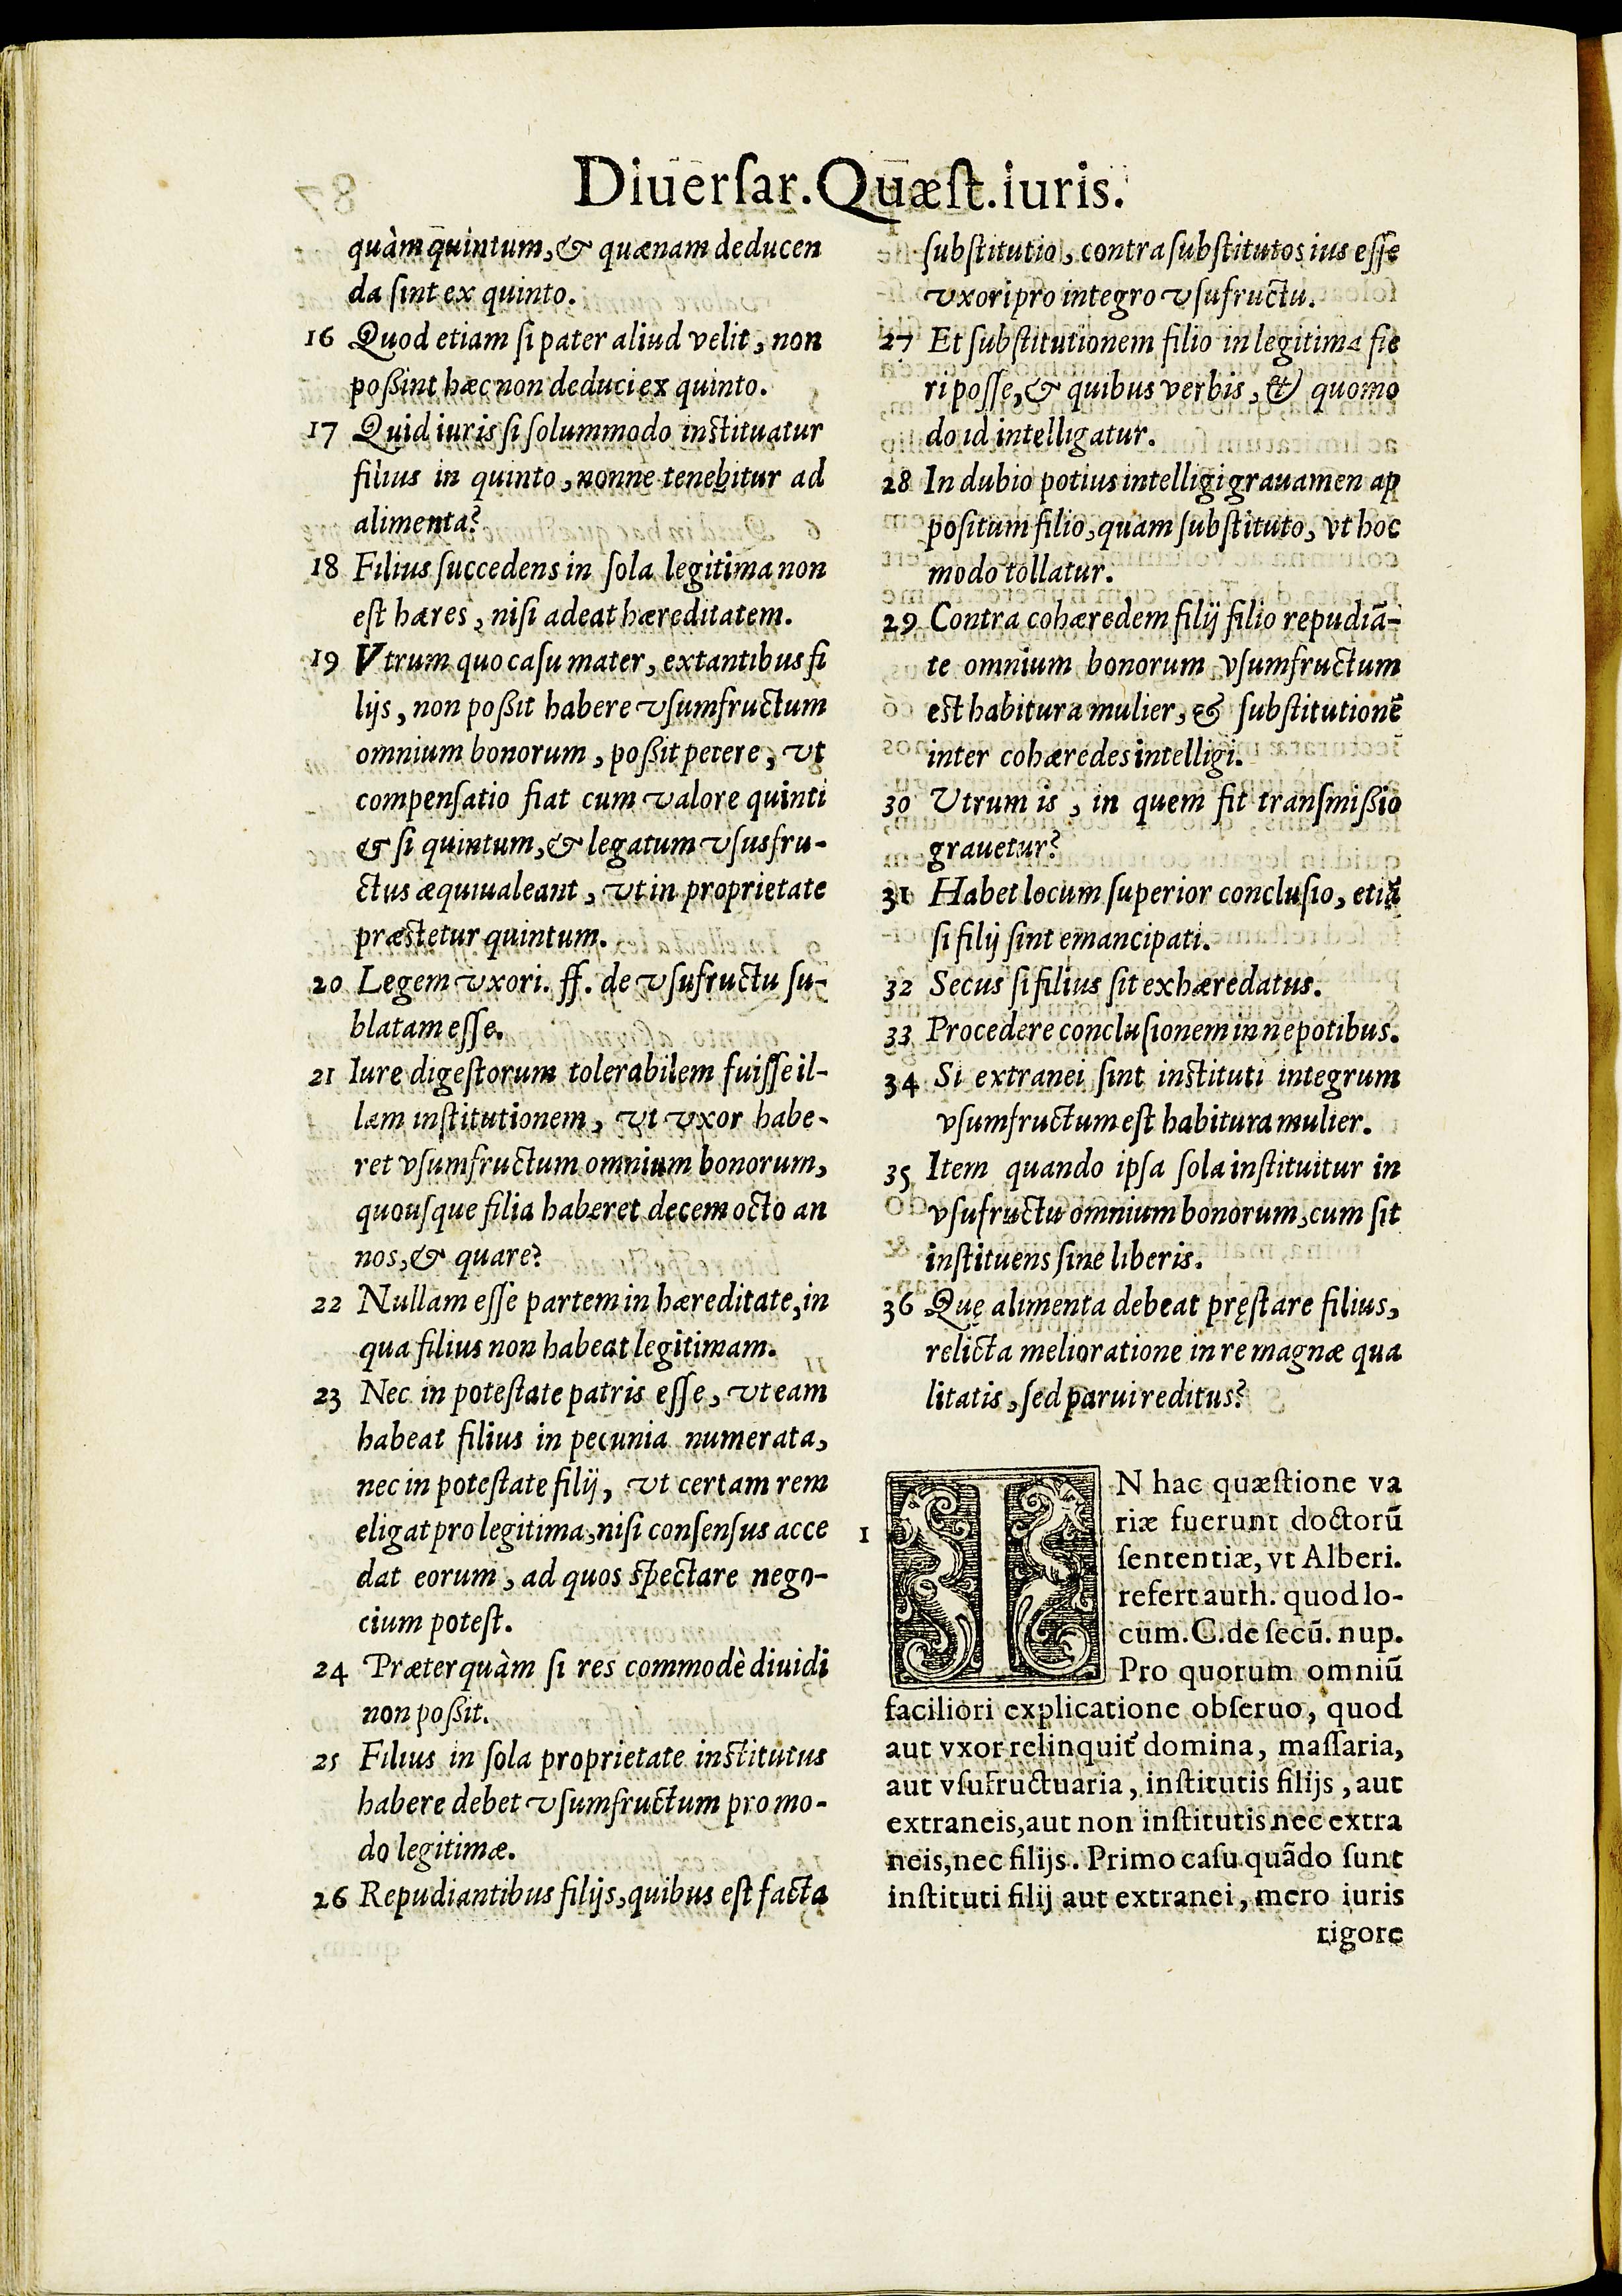 Diuerſar. Quæſt. iuris.
quàm quintum, & quænam deducen
da ſint ex quinto.
16 Quod etiam ſi pater aliud velit, non
poßint hæc non deduci ex quinto.
17 Quid iuris ſi ſolummodo inſtituatur
filius in quinto, nonne tenebitur ad
alimenta?
18 Filius ſuccedens in ſola legitima non
eſt hæres, niſi adeat hæreditatem.
19 Vtrum quo caſu mater, extantibus fi
lijs, non poßit habere vſumfructum
omnium bonorum, poßit petere, vt
compenſatio fiat cum valore quinti
& ſi quintum, & legatum vſusfru-
ctus æquiualeant, vt in proprietate
præſtetur quintum.
20 Legem vxori. ff. de vſufructu ſu-
blatam eſſe.
21 Iure digeſtorum tolerabilem fuiſſe il-
lam inſtitutionem, vt vxor habe-
ret vſumfructum omnium bonorum,
quouſque filia haberet decem octo an
nos, & quare?
22 Nullam eſſe partem in hæreditate, in
qua filius non habeat legitimam.
23 Nec in poteſtate patris eſſe, vt eam
habeat filius in pecunia numerata,
nec in poteſtate filij, vt certam rem
eligat pro legitima, niſi conſenſus acce
dat eorum, ad quos ſpectare nego-
cium poteſt.
24 Præterquàm ſi res commodè diuidi
non poßit.
25 Filius in ſola proprietate inſtitutus
habere debet vſumfructum pro mo-
do legitimæ.
26 Repudiantibus filijs, quibus eſt facta
ſubſtitutio, contra ſubſtitutos ius eſſe
vxori pro integro vſufructu.
27 Et ſubſtitutionem filio in legitima fie
ri poſſe, & quibus verbis, & quomo
do id intelligatur.
28 In dubio potius intelligi grauamen ap
poſitum filio, quam ſubſtituto, vt hoc
modo tollatur.
29 Contra cohæredem filij filio repudiā-
te omnium bonorum vſumfructum
eſt habitura mulier, & ſubſtitutionē
inter cohæredes intelligi.
30 Vtrum is, in quem fit tranſmißio
grauetur?
31 Habet locum ſuperior concluſio, etiā
ſi filij ſint emancipati.
32 Secus ſi filius ſit exhæredatus.
33 Procedere concluſionem in nepotibus.
34 Si extranei ſint inſtituti integrum
vſumfructum eſt habitura mulier.
35 Item quando ipſa ſola inſtituitur in
vſufructu omnium bonorum, cum ſit
inſtituens ſine liberis.
36 Quę alimenta debeat pręſtare filius,
relicta melioratione in re magnæ qua
litatis, ſed parui reditus?
1 IN hac quæſtione va
riæ fuerunt doctorū
ſententiæ, vt Alberi.
refert auth. quod lo-
cum. C. de ſecū. nup.
Pro quorum omniū
faciliori explicatione obſeruo, quod
aut vxor relinquit' domina, maſſaria,
aut vſufructuaria, inſtitutis filijs, aut
extraneis, aut non inſtitutis nec extra
neis, nec filijs. Primo caſu quādo ſunt
inſtituti filij aut extranei, mero iuris
rigore